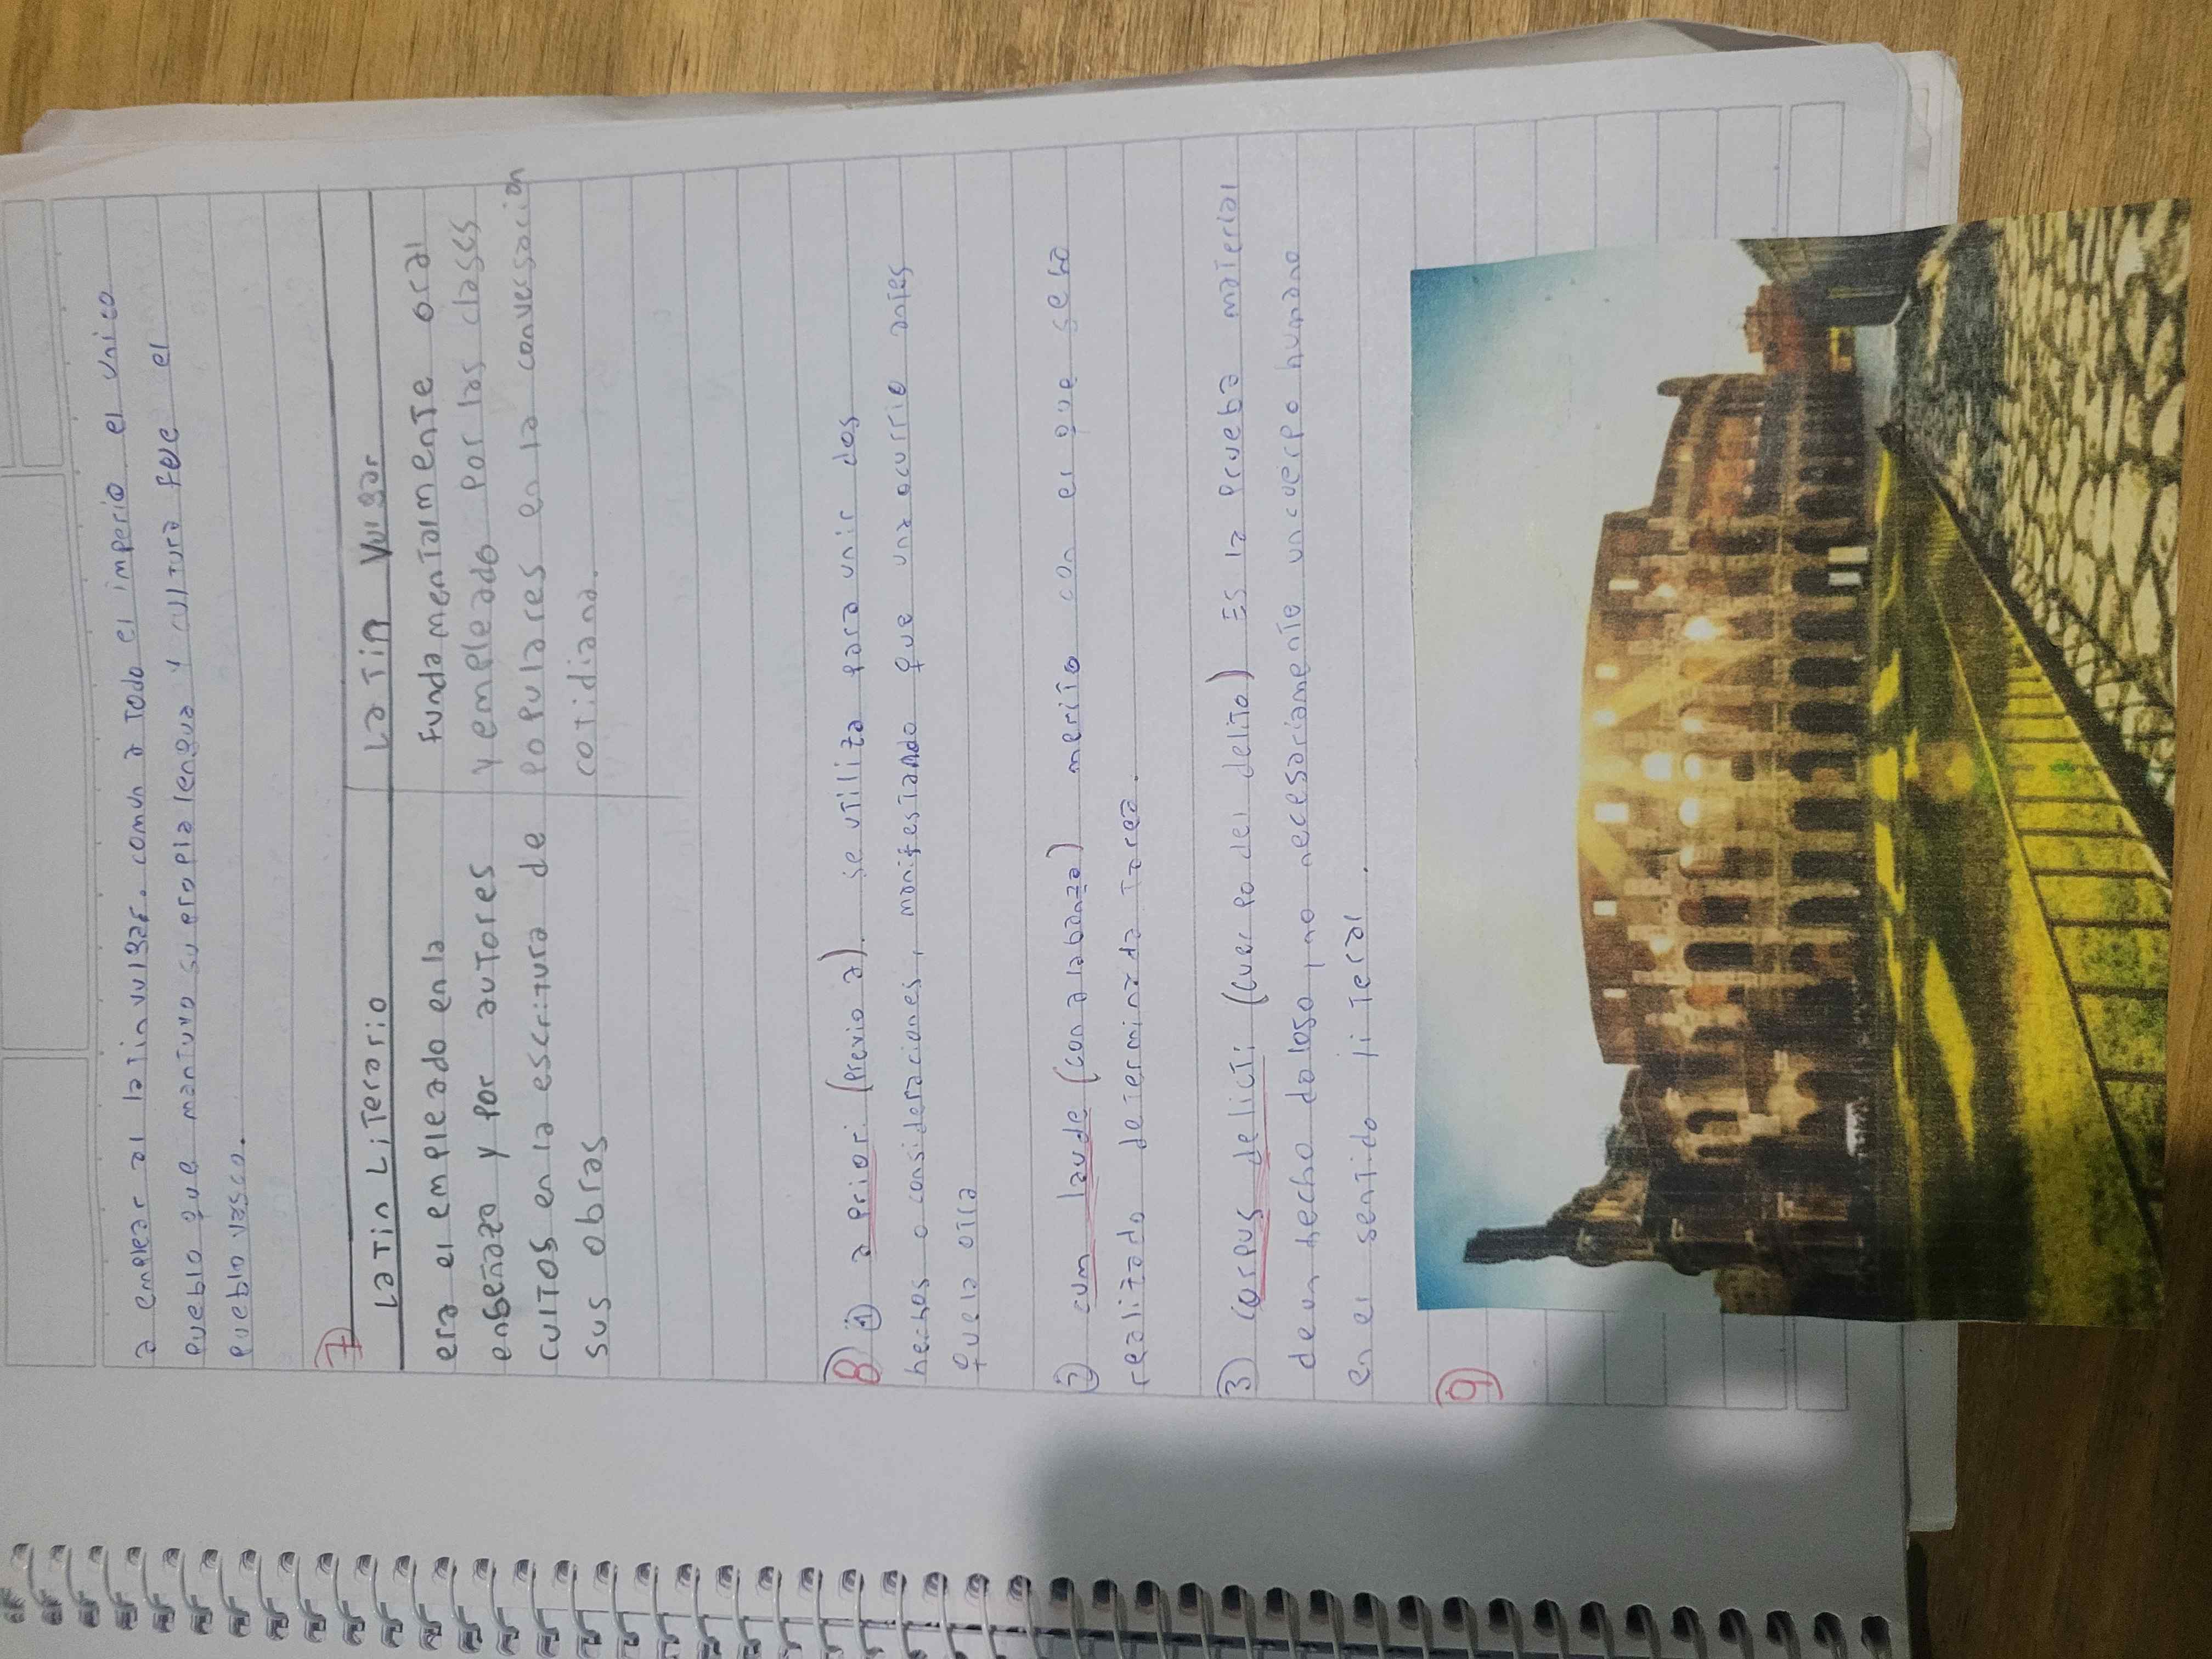 a emplear al latin vulgar. comun a todo el imperio el unico
pueblo que mantuvo su propia lengua y cultura fue el
pueblo vasco.
7
Latin Literario
Latin Vulgar
era el empleado en la
enseñaza y por autores
cultos en la escritura de
sus obras
Fundamentalmente oral
y empleado por las clases
populares en la conversacion
cotidiana.
8 1 a priori (previo a). se utiliza para unir dos
hechos o consideraciones, manifestando que una ocurrio antes
que la otra
2 cum laude (con alabanza) merito con el que se ha
realizado determinada tarea.
3 corpus delicti (cuerpo del delito) Es la prueba material
de un hecho doloso, no necesariamente un cuerpo humano
en el sentido literal.
9